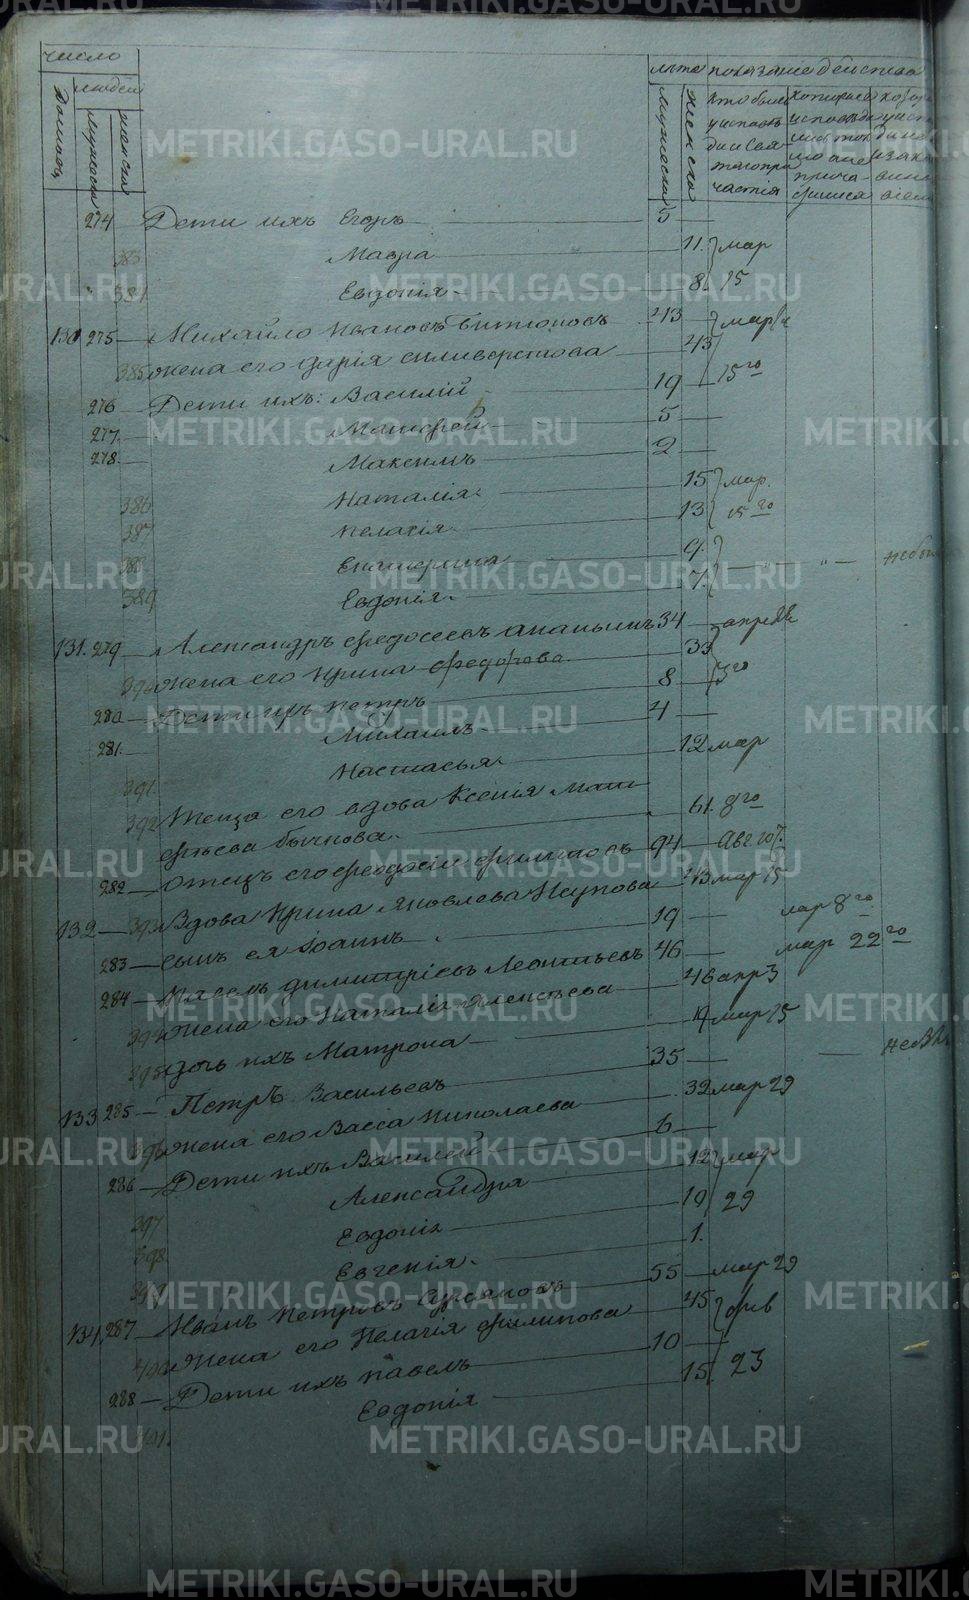 число
людей
домовъ
мужеска
женска
лета показание действа
мужеска
женска
кто были
у исповеди и свя-
таго при-
частія
274 Дети ихъ Егоръ 5
383 Мавра 11. мар
384 Евдокія 8 15
130 275 Михайло Ивановъ 43 мар
385 жена его Дарія Силиверстова 43 15го
276 Дети ихъ: Василій 19
277. 5
278. Максимъ 2
386 Наталія 15 мар.
387 Пелагія 13 15го
388 Екатерина 9.
389 Евдокія 7.
131. 279 Александръ Федосеевъ Ананьинъ 34 апреля
390 жена его Ирина Федорова 33 3го
280 Дети ихъ Петръ 8
281. Михаилъ 4
391. Настасья 12 мар
392 Теща его вдова Ксенія Мат
фѣева Бычкова 61. 8го
282 Отецъ его Феодосій Филиповъ 94 Авг. 10
132 393 Вдова Ирина Яковлева 43 мар 15
283 сынъ ея Іоаннъ 19 мар 8го
284 Павелъ Димитріевъ Леонтьевъ 46 мар 22го
394 жена его Наталія Алексѣева 46 апр 3
395 дочь ихъ Матрона 19 мар 15
133 285 Петръ Васильевъ 35
396 жена его Васса Николаева 32 мар 29
286 Дети ихъ Василей 6
397 Александра 12 мар
398 Евдокія 10 29
399 Евгенія. 1.
134 287 Иванъ Петровъ 55 мар 29
400 жена его Пелагія Филипова 45 фев
288 Дети ихъ Павелъ 10 23
401. Евдокія 15
METRIKI.GASO-URAL.RU